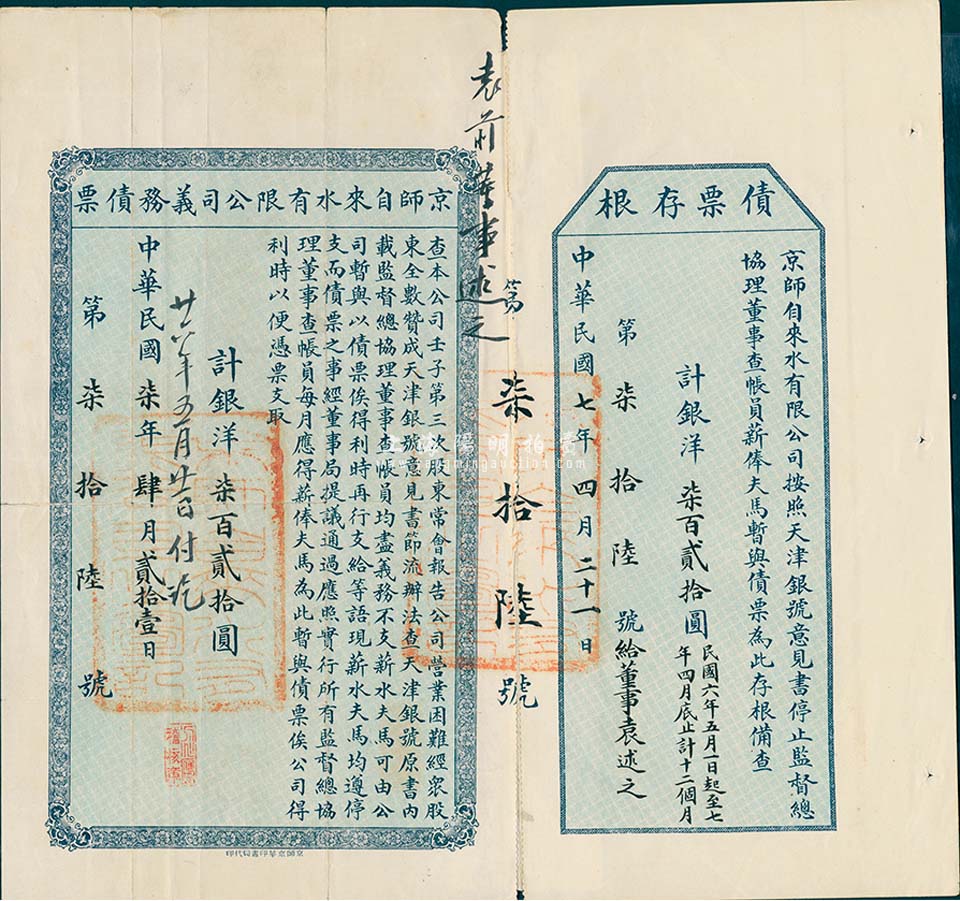 債票存根
京師自來水有限公司按照天津銀號意見書停止監督總
協理董事查帳員薪俸夫馬暫與債票為此存根備查
計銀洋柒百貳拾圓
民國六年五月一日起至七
年四月底止計十二個月
第柒拾陸號給董事袁述之
中華民國七年四月二十一日
袁前董事述之
第柒拾陸號
京師自來水有限公司義務債票
查本公司壬子第三次股東常會報告公司營業困難經衆股
東全數贊成天津銀號意見書節流辦法查天津銀號原書內
載監督總協理董事查帳員均盡義務不支薪水夫馬可由公
司暫與以債票俟得利時再行支給等語現薪水夫馬均遵停
支而債票之事經董事局提議通過應照實行所有監督總協
理董事查帳員每月應得薪俸夫馬為此暫與債票俟公司得
利時以便憑票支取
計銀洋柒百貳拾圓
年五月日付訖
中華民國柒年肆月貳拾壹日
第柒拾陸號
京師京華印書局代印
上海陽明拍賣